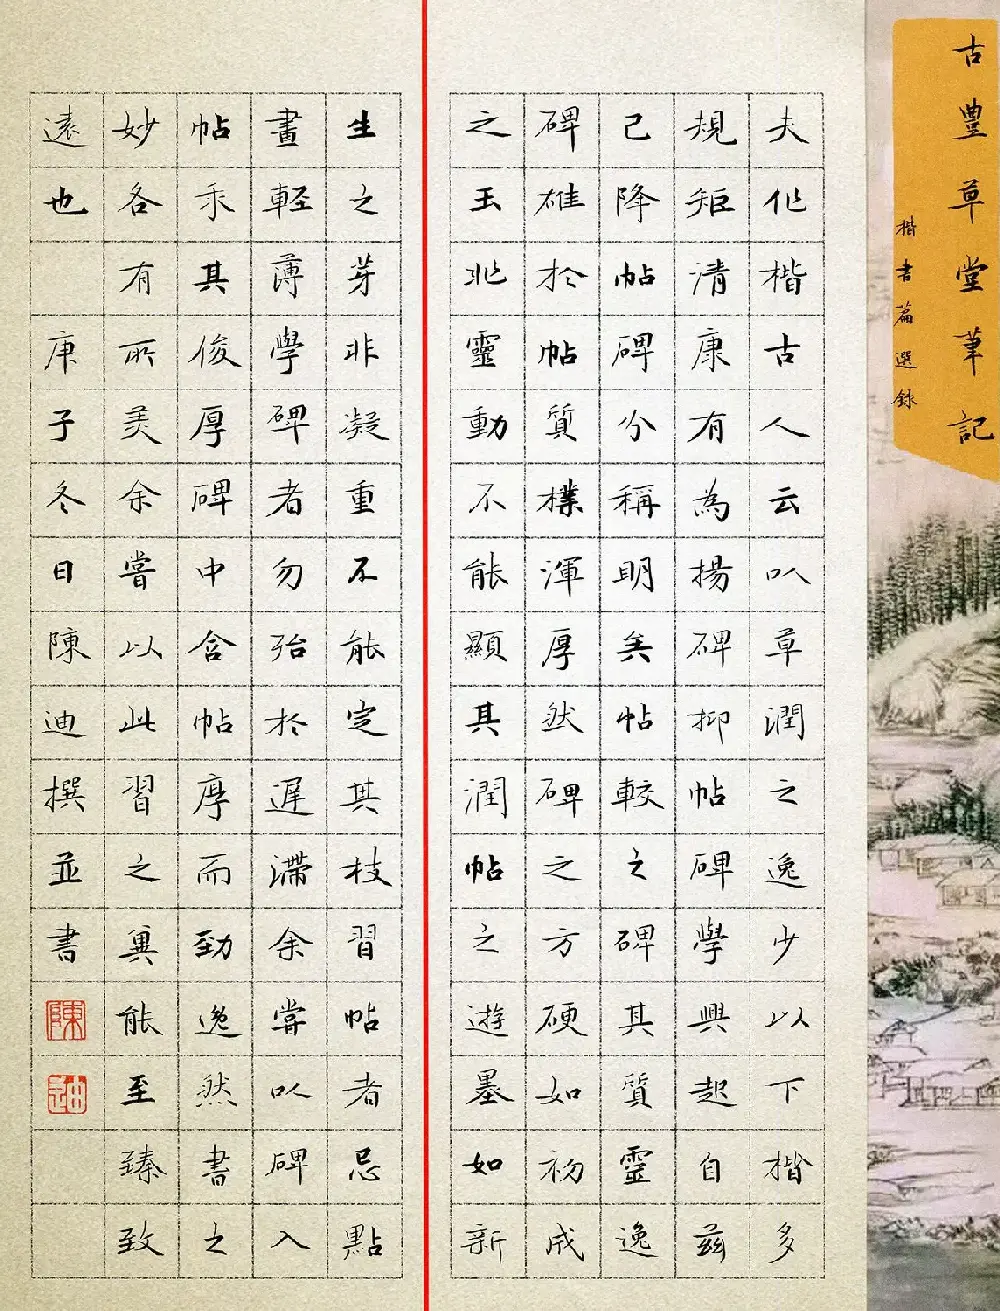 古豊草堂筆記
楷書篇選録
夫作楷古人云以草潤之逸少以下楷多
規矩清康有為揚碑抑帖碑學興起自茲
已降帖碑分稱明矣帖較之碑其質靈逸
碑雄於帖質樸渾厚然碑之方硬如初成
之玉非靈動不能顯其潤帖之遊墨如新
生之芽非凝重不能定其枝習帖者忌點
畫輕薄學碑者勿殆於遲滯余嘗以碑入
帖汞其俊厚碑中含帖厚而勁逸然書之
妙各有所美余嘗以此習之冀能至臻致
遠也庚子冬日陳迪撰並書
陳
迪